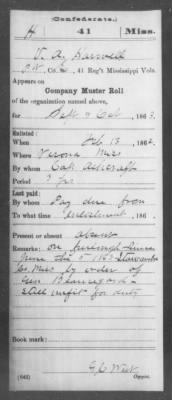 (Confederate.)
H 41 Miss.
Co. , 41 Reg't Mississippi Vols.
Appears on
Company Muster Roll
of the organization named above,
for Sept & Oct, 1863.
Enlisted:
When Feb 13, 1862.
Where Verona Miss
By whom Capt Ashcraft
Period 3 yrs
Last paid:
By whom Pay due from
To what time enlistment, 186 .
Present or absent absent
Remarks: on furlough since
June the 5 1862
Co Miss by order of
Gen Beauregard
still unfit for duty
Book mark:
(642) Copyist.